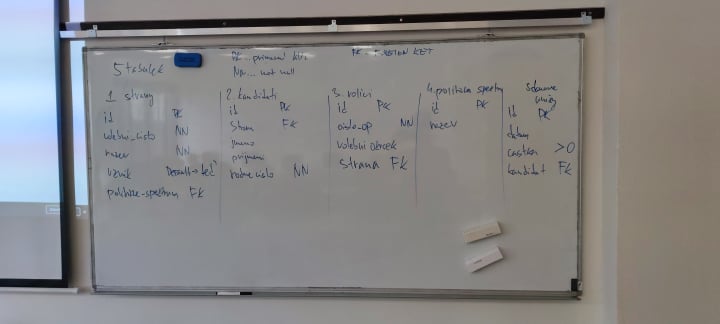 5 tabulek
PK... primární klíč
NN... not null
FK... FOREIGN KEY
1. strany
id PK
volebni_cislo NN
nazev NN
vznik Default → teď
politicke-spektrum FK
2. kandidati
id PK
strana FK
jmeno
prijmeni
rodne cislo NN
3. volici
id PK
cislo-op NN
volebni okrsek
strana FK
4. politicka spektra
id PK
nazev
id PK
datum
castka >0
kandidat FK